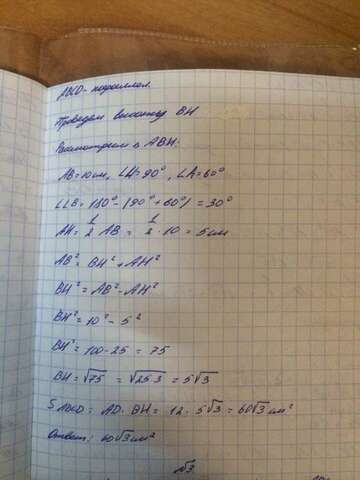 ABCD - параллел.
Проведем высоту BH
Рассмотрим △ ABH:
AB=10 см, ∠H=90°, ∠A=60°
∠B = 180° - (90° + 60°) = 30°
AH = 1/2 AB = 1/2 · 10 = 5 см
AB² = BH² + AH²
BH² = AB² - AH²
BH² = 10² - 5²
BH² = 100 - 25 = 75
BH = √75 = √25·3 = 5√3
S ABCD = AD · BH = 12 · 5√3 = 60√3 см²
Ответ: 60√3 см²
√3